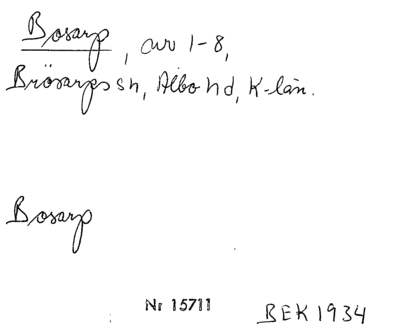 Bosarp, avs 1-8,
Brösarps sn, Albo hd, K-län.
Bosarp
Nr 15711 BEK 1934